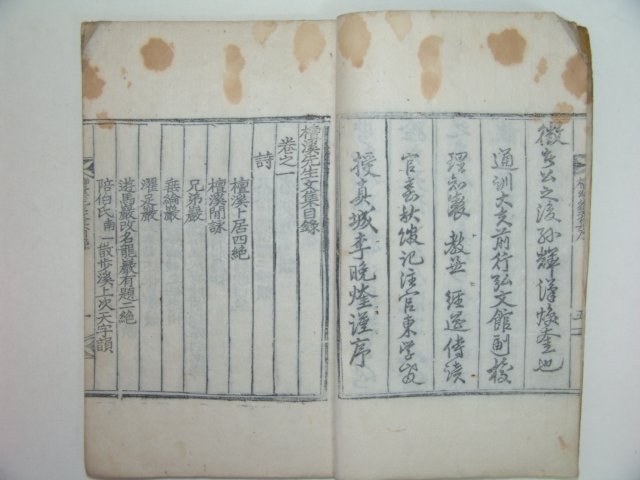 微吾公之後孫輝漢煥奎也
通訓大夫前行弘文館副校
理知製 教兼 經筵侍讀
官春秋館記注官東學敎
授眞城李晩煃謹序
檀溪先生文集目錄
卷之一
詩
檀溪卜居四絶
檀溪閒詠
兄弟巖
垂綸巖
濯足巖
遊馬巖改名龍巖有題二絶
陪伯氏南一散步溪上次天字韻